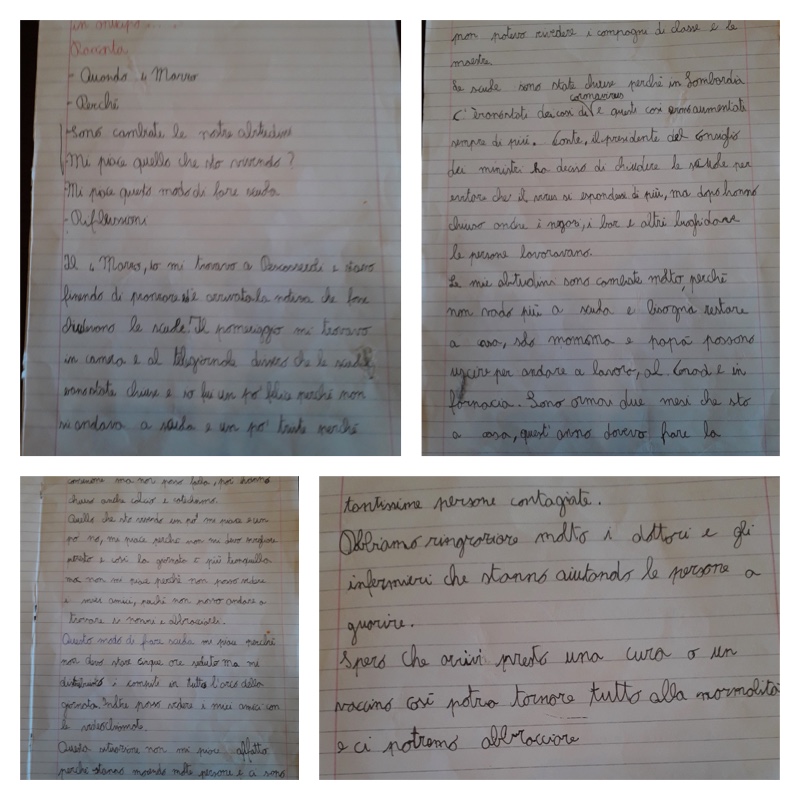 in anticipo....
Racconta
- Quando 4 Marzo
- Perché
- Sono cambiate le nostre abitudini
- Mi piace quello che sto vivendo?
- Mi piace questo modo di fare scuola
- Riflessioni
Il 4 Marzo, io mi trovavo a e stavo
finendo di pranzare è arrivata la notizia che forse
chiudevano le scuole. Il pomeriggio mi trovavo
in camera e al telegiornale dissero che le scuole
erano state chiuse e io fui un po' felice perché non
si andava a scuola e un po' triste perché
non potevo rivedere i compagni di classe e le
maestre.
Le scuole sono state chiuse perché in Lombardia
c'erano stati dei casi di coronavirus e questi casi erono aumentati
sempre di più. Conte, il presidente del consiglio
dei ministri ha deciso di chiudere le scuole per
evitare che il virus si espandesse di più, ma dopo hanno
chiuso anche i negozi, i bar e altri luoghi dove
le persone lavoravano.
Le mie abitudini sono cambiate molto, perché
non vado più a scuola e bisogna restare
a casa, solo mamma e papà possono
uscire per andare a lavoro, al Conad e in
farmacia. Sono ormai due mesi che sto
a casa, quest'anno dovevo fare la
comunione ma non posso farla, poi hanno
chiuso anche calcio e catechismo.
Quello che sto vivendo un po' mi piace e un
po' no, mi piace perché non mi devo svegliare
presto e così la giornata è più tranquilla
ma non mi piace perché non posso vedere
i miei amici, poiché non posso andare a
trovare i nonni e abbracciarli.
Questo modo di fare scuola mi piace perché
non devo stare cinque ore seduto ma mi
distribuisco i compiti in tutto l'arco della
giornata. Inoltre posso vedere i miei amici con
le videochiamate.
Questa situazione non mi piace affatto
perché stanno morendo molte persone e ci sono
tantissime persone contagiate.
Abbiamo ringraziare molto i dottori e gli
infermieri che stanno aiutando le persone a
guarire.
Spero che arrivi presto una cura o un
vaccino così potrà tornare tutto alla normalità
e ci potremo abbracciare